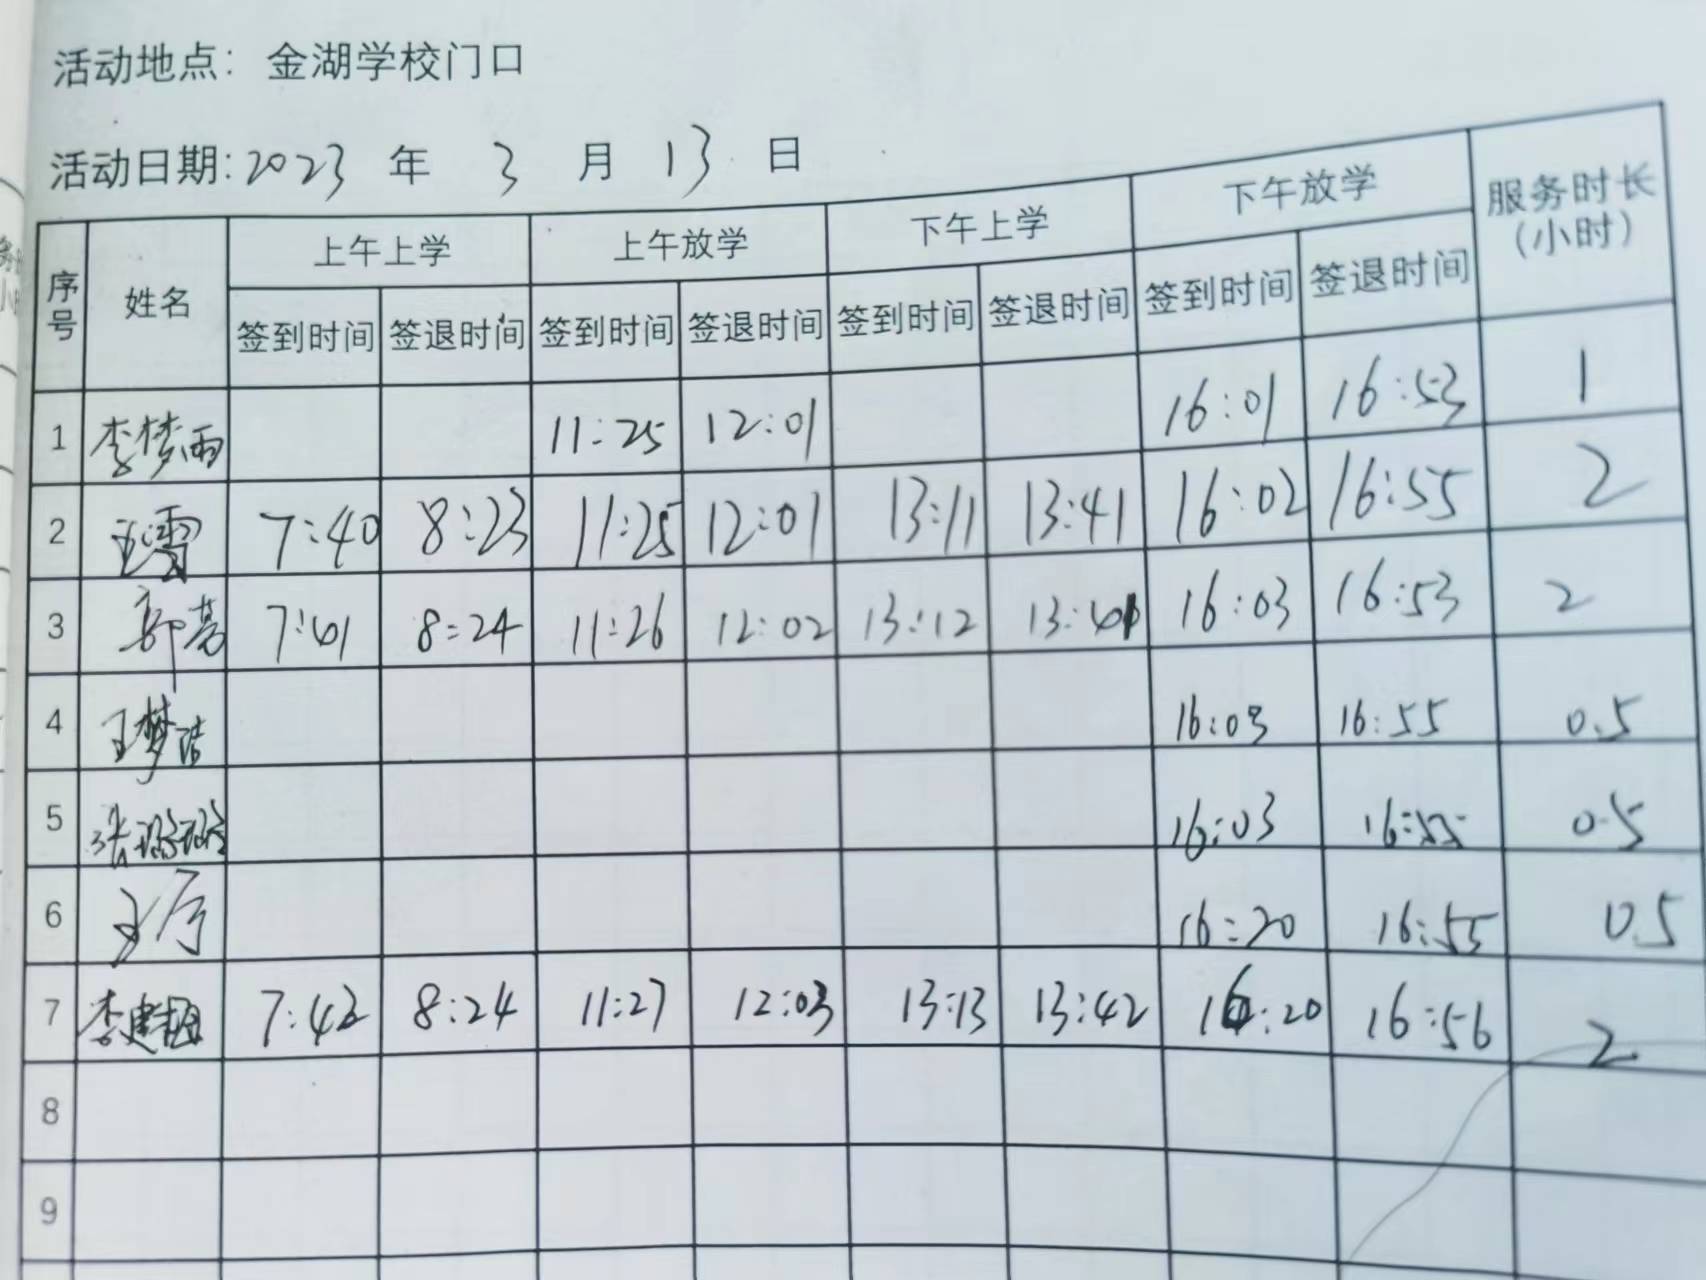 活动地点：金湖学校门口
活动日期:2023 年 3 月 13 日
序号 姓名 上午上学 上午放学 下午上学 下午放学 服务时长(小时)
签到时间 签退时间 签到时间 签退时间 签到时间 签退时间 签到时间 签退时间
1 李梦雨 11:25 12:01 16:01 16:53 1
2 王雪 7:40 8:23 11:25 12:01 13:11 13:41 16:02 16:55 2
3 郭亮 7:41 8:24 11:26 12:02 13:12 13:41 16:03 16:53 2
4 王梦洁 16:03 16:55 0.5
5 张璐璐 16:03 16:55 0.5
6 王 16:20 16:55 0.5
7 李建 7:43 8:24 11:27 12:03 13:13 13:42 16:20 16:56 2
8
9